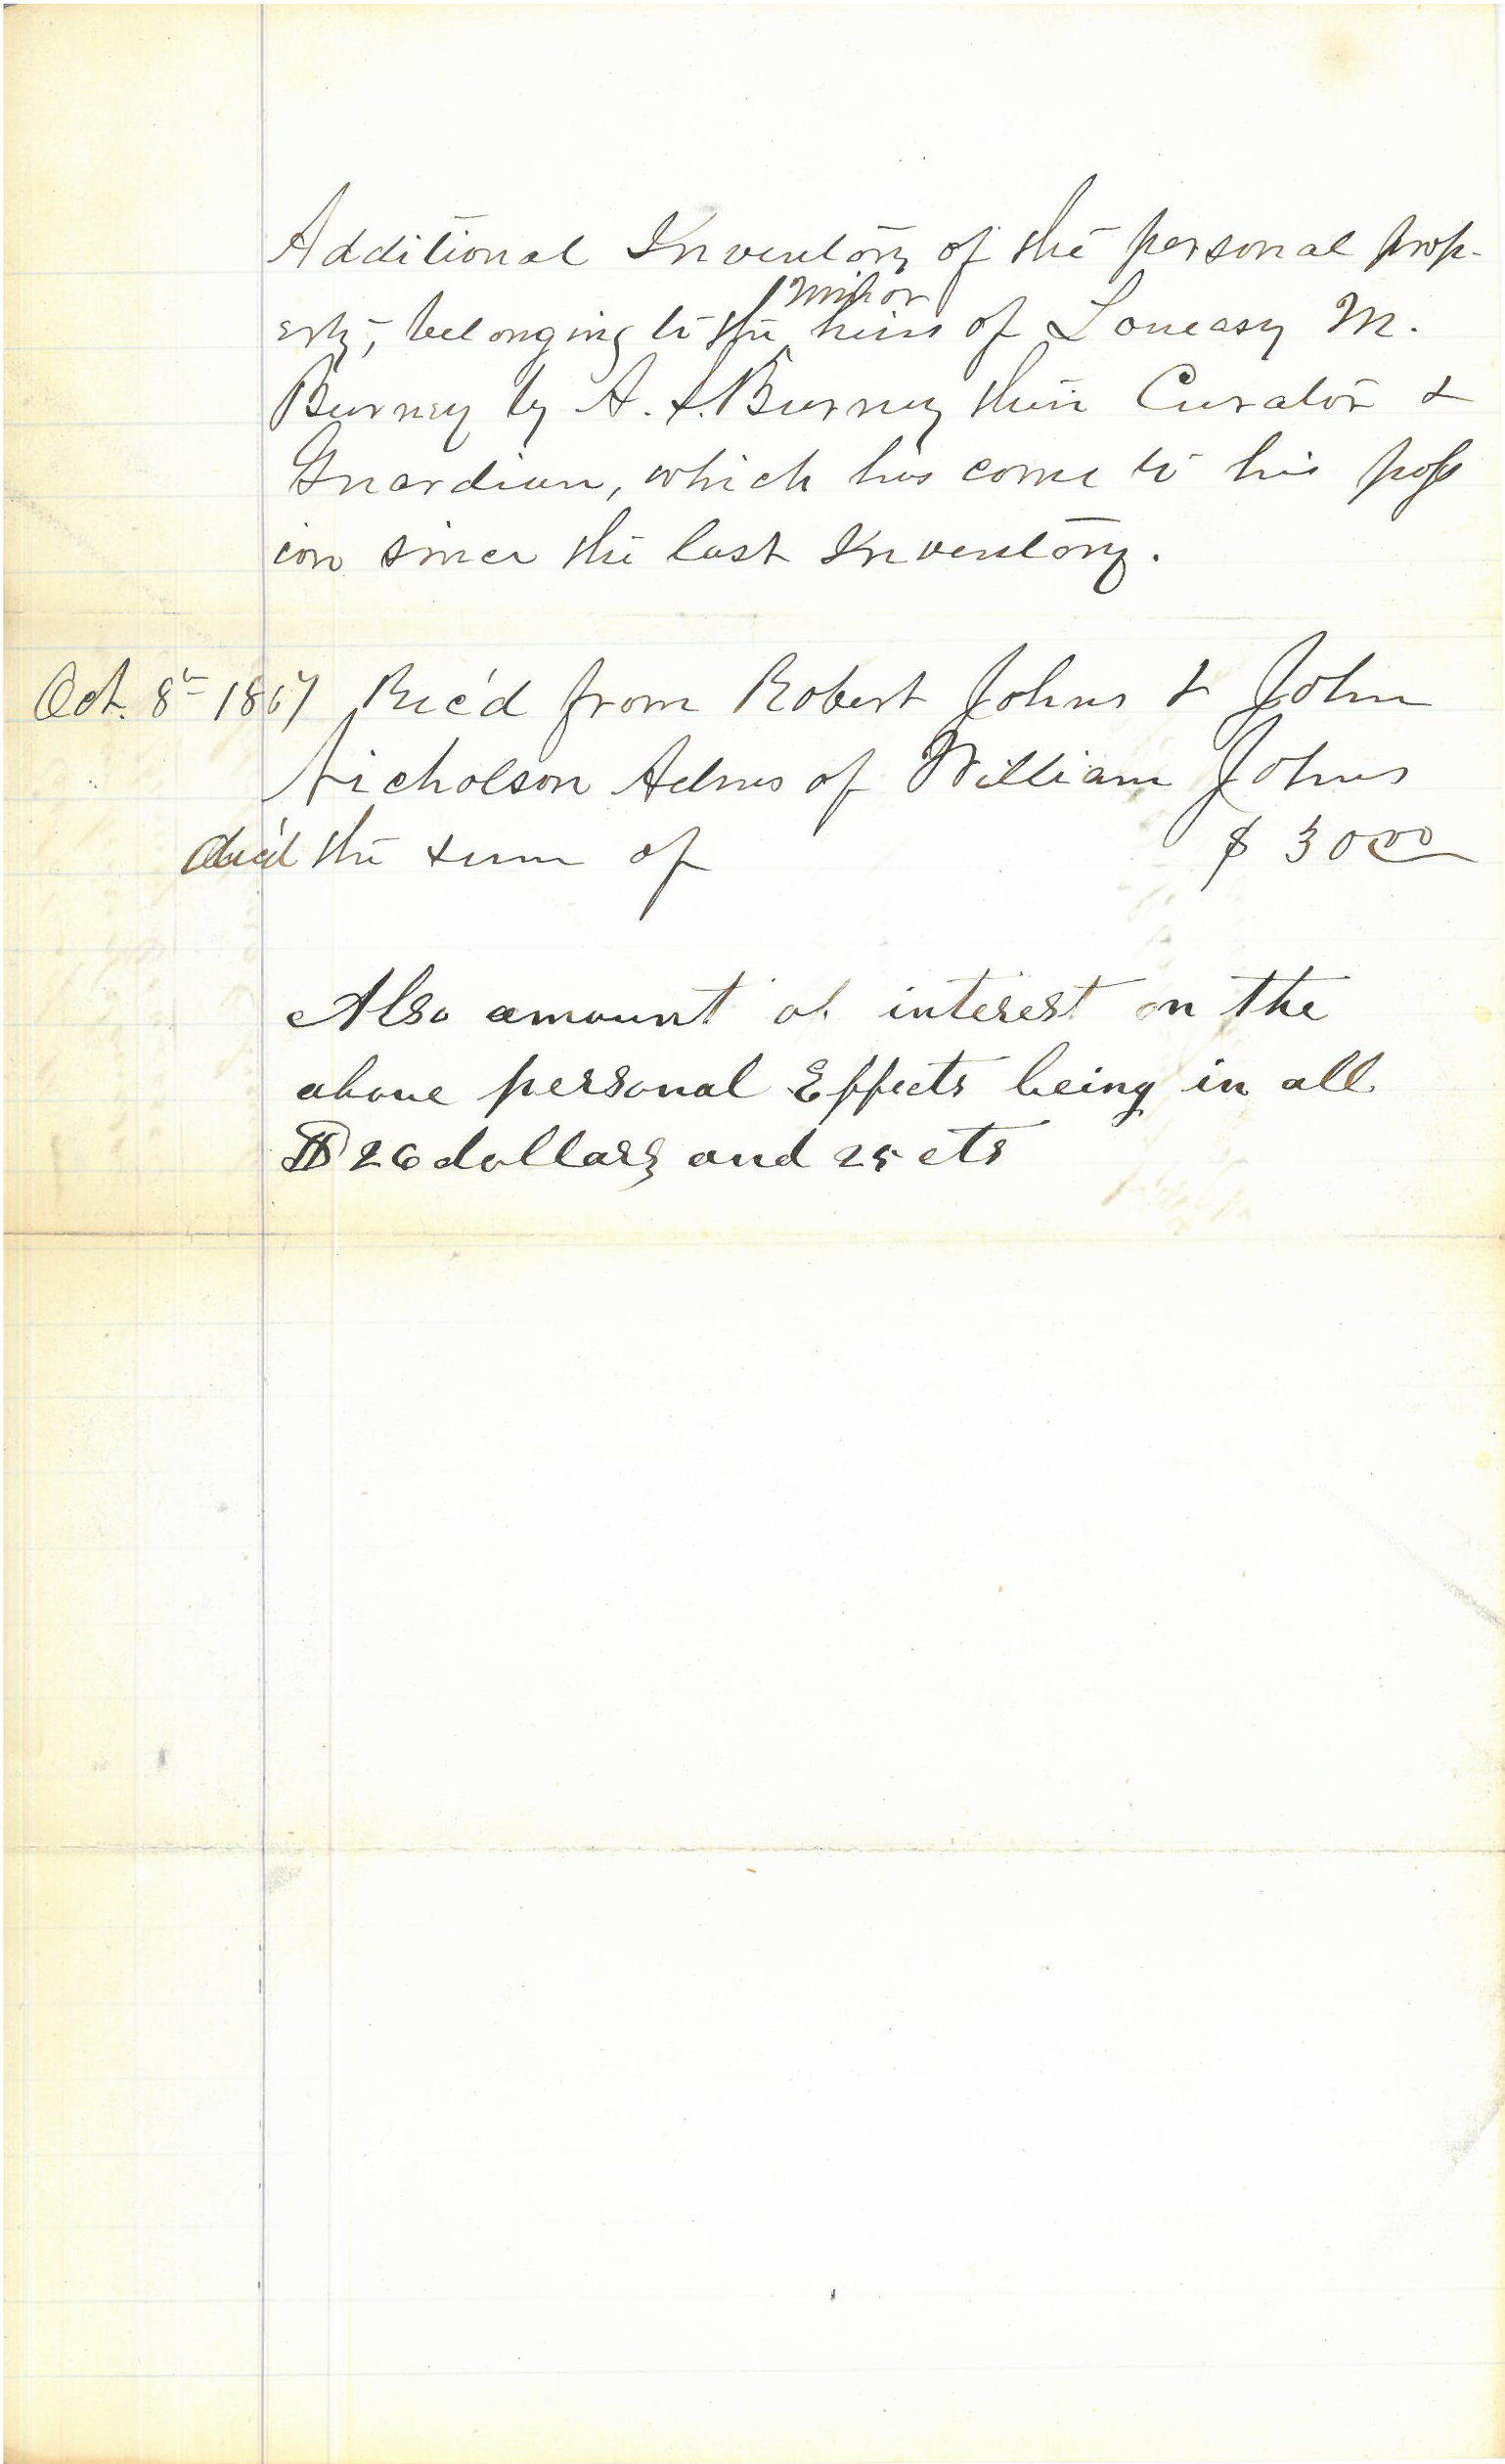 Additional Inventory of the personal prop-
erty, belonging to the minor heirs of Loueasy M.
Burney by A. S. Burney their Curator &
Guardian, which has come to his poss
ion since the last Inventory.
Oct. 8th 1867 Rec'd from Robert Johns & John
Nicholson Admrs of William Johns
dec'd the sum of $ 30000
Also amount of interest on the
above personal Effects being in all
$26 dollars and 25 cts